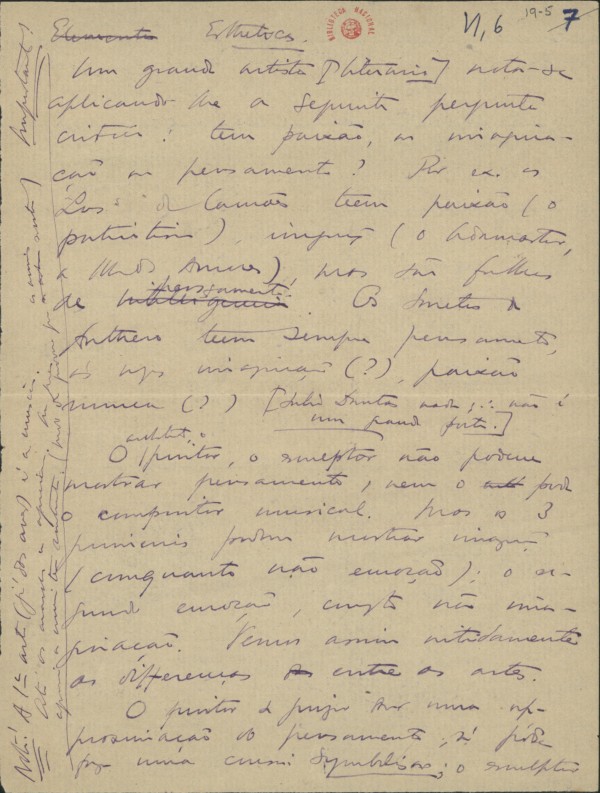 19-5
VI, 6
7
BIBLIOTECA NACIONAL
Elementos Esthetica.
Um grande artista [literario] nota-se
aplicando-lhe a seguinte pergunta
critica: tem paixão, ou imagina-
ção ou pensamento? Por ex. os
Lus. de Camões teem paixão (o
patriotismo), imaginação (o Adamastor,
a Ilha dos Amores), mas são falhos
de intelligencia pensamento. Os Sonetos de
Anthero teem sempre pensamento,
ás vezes imaginação (?), paixão
nunca (?) [Julio Dantas nada; ∴ não é
um grande poeta.]
architecto o
O pintor, o esculptor não podem
mostrar pensamento, nem o pode
o compositor musical. Mas os 3
primeiros podem mostrar imaginação
(conquanto não emoção); o se-
gundo emoção, não ima-
ginação. Vemos assim nitidamente
as differenças entre as artes.
O pintor se fizer uma ap-
proximação do pensamento, só pode
fazer uma symbolismo; o esculptor
Nota: A 1ª arte (já das aves) é a musica.
Até os
Importante!